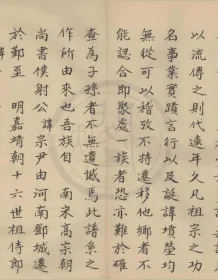 以流傳之則代遠年久凡祖宗之功
名事業實蹟言行以及誕諱墳塋均
無從可以稽攷不特遷移他鄉者不
能認合即聚處一族者恐亦難於確
查為子孫者不無遺憾焉此譜系之
作所由來也吾族自 南宋高宗朝
尚書僕射公諱宗尹由河南鄧城遷
於鄞至 明嘉靖朝十六世祖侍郎
諱